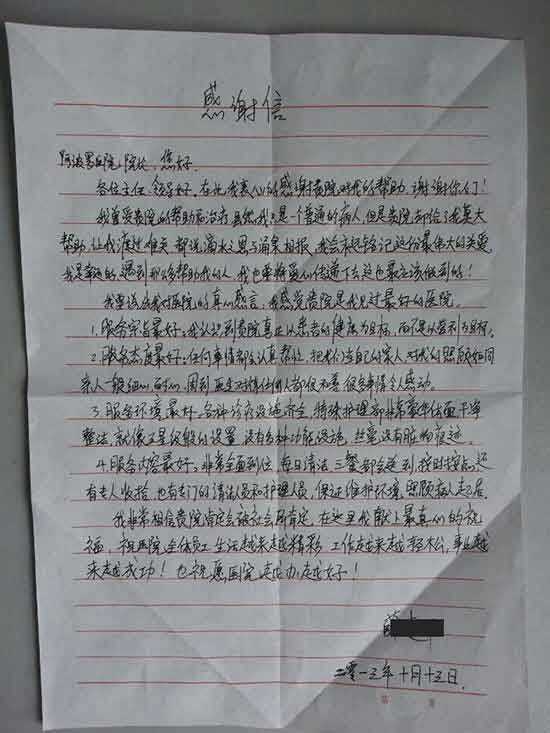 感谢信
阿波罗医院院长,您好
各位主任、领导好,在此我衷心的感谢贵院对我的帮助,谢谢你们!
我重受贵院的帮助和治疗,虽然我只是一个普通的病人,但是贵院却给了我莫大
帮助,让我渡过难关,都说滴水之恩,涌泉相报,我会永远铭记这份最伟大的关爱,
我是幸运的,遇到那么多帮助我的人,我也要将爱心传递下去,这也是应该做到的!
我要谈谈我对医院的真心感言,我感觉贵院是我见过最好的医院。
1.服务宗旨最好:我认识到贵院真正以患者的健康为目标,而不是以营利为目标。
2.服务态度最好:任何事情都会认真帮忙,把我们当自己的家人,对我们照顾如同
家人一般细心、耐心、周到,医生对待任何人都很和善,很多事情令人感动。
3.服务环境最好:各种诊疗设施齐全,特殊护理部非常豪华,住面干净
整洁,就像五星级般的设置,设有各种功能设施,丝毫没有脏的痕迹。
4.服务内容最好:非常全面到位,每日清洁,三餐都会送到,按时按点,还
有专人收拾,也有专门的清洁员和护理人员,保证维护环境,照顾病人起居。
我非常相信贵院肯定会被社会所肯定,在这里我献上最真心的祝
福,祝医院全体员工生活越来越精彩,工作越来越轻松,事业越
来越成功!也祝愿医院越办越好!
二零一三年十月十三日.